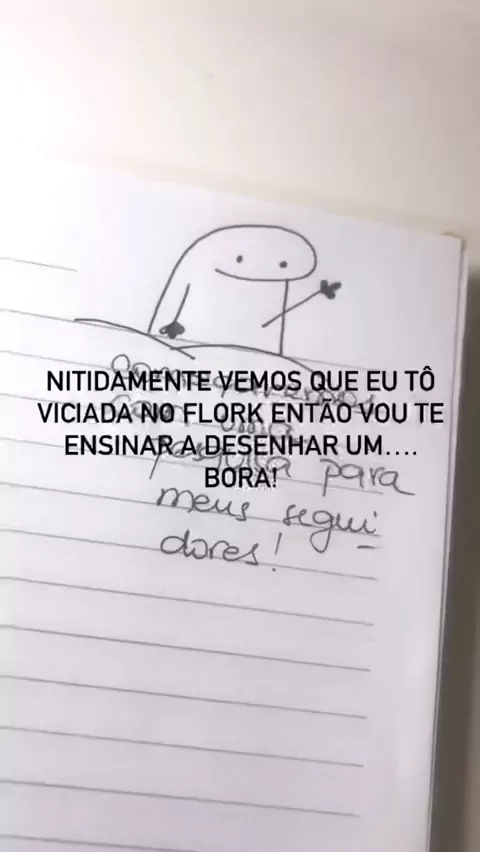 NITIDAMENTE VEMOS QUE EU TÔ
VICIADA NO FLORK ENTÃO VOU TE
ENSINAR A DESENHAR UM....
BORA!
para
meus segui
dores!